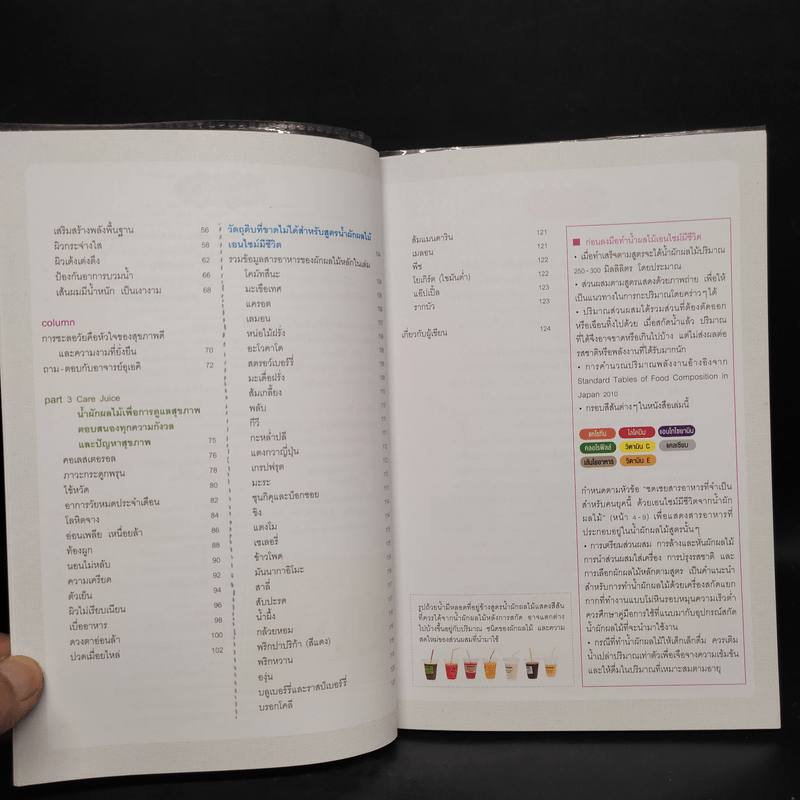 เสริมสร้างพลังพื้นฐาน 56
ผิวกระจ่างใส 58
ผิวเด้งเต่งตึง 62
ป้องกันอาการบวมน้ำ 66
เส้นผมมีน้ำหนัก เป็นเงางาม 68
column
การชะลอวัยคือหัวใจของสุขภาพดี
และความงามที่ยั่งยืน 70
ถาม-ตอบกับอาจารย์อุเอคิ 72
part 3 Care Juice
น้ำผักผลไม้เพื่อการดูแลสุขภาพ
ตอบสนองทุกความกังวล
และปัญหาสุขภาพ 75
คอเลสเตอรอล 76
ภาวะกระดูกพรุน 78
ไข้หวัด 80
อาการวัยหมดประจำเดือน 82
โลหิตจาง 84
อ่อนเพลีย เหนื่อยล้า 86
ท้องผูก 88
นอนไม่หลับ 90
ความเครียด 92
ตัวเย็น 94
ผิวไม่เรียบเนียน 96
เบื่ออาหาร 98
ดวงตาอ่อนล้า 100
ปวดเมื่อยไหล่ 102
วัตถุดิบที่ขาดไม่ได้สำหรับสูตรน้ำผักผลไม้
เอนไซม์มีชีวิต
รวมข้อมูลสารอาหารของผักผลไม้หลักในเล่ม
โคมัทสึนะ
มะเขือเทศ
แครอต
เลมอน
หน่อไม้ฝรั่ง
อะโวคาโด
สตรอว์เบอร์รี่
มะเดื่อฝรั่ง
ส้มเกลี้ยง
พลับ
กีวี
กะหล่ำปลี
แตงกวาญี่ปุ่น
เกรปฟรุต
มะระ
ชุนกิคุและบ็อกชอย
ขิง
แตงโม
เซเลอรี่
ข้าวโพด
มันนากาอิโมะ
สาลี่
สับปะรด
น้ำผึ้ง
กล้วยหอม
พริกปาปริก้า (สีแดง)
พริกหวาน
องุ่น
บลูเบอร์รี่และราสป์เบอร์รี่
บรอกโคลี
ส้มแมนดาริน 121
เมลอน 121
พีช 122
โยเกิร์ต (ไขมันต่ำ) 122
แอ๊ปเปิ้ล 123
รากบัว 123
เกี่ยวกับผู้เขียน 124
รูปถ้วยน้ำมีหลอดที่อยู่ข้างสูตรน้ำผักผลไม้แสดงสีสัน
ที่ควรได้จากน้ำผักผลไม้หลังการสกัด อาจแตกต่าง
ไปบ้างขึ้นอยู่กับปริมาณ ชนิดของผักผลไม้ และความ
สดใหม่ของส่วนผสมที่นำมาใช้
ก่อนลงมือทำน้ำผลไม้เอนไซม์มีชีวิต
• เมื่อทำเสร็จตามสูตรจะได้น้ำผักผลไม้ปริมาณ
250-300 มิลลิลิตร โดยประมาณ
• ส่วนผสมตามสูตรแสดงด้วยภาพถ่าย เพื่อให้
เป็นแนวทางในการกะปริมาณโดยคร่าวๆ ได้
• ปริมาณส่วนผสมได้รวมส่วนที่ต้องตัดออก
หรือเฉือนทิ้งไปด้วย เมื่อสกัดน้ำแล้ว ปริมาณ
ที่ได้จึงอาจขาดหรือเกินไปบ้าง แต่ไม่ส่งผลต่อ
รสชาติหรือพลังงานที่ได้รับมากนัก
• การคำนวณปริมาณพลังงานอ้างอิงจาก
Standard Tables of Food Composition in
Japan 2010
• กรอบสีสันต่างๆ ในหนังสือเล่มนี้
แคโรทีน ไลโคปีน แอนโทไซยานิน
คลอโรฟิลล์ วิตามิน C แคลเซียม
เส้นใยอาหาร วิตามิน E
กำหนดตามหัวข้อ "ชดเชยสารอาหารที่จำเป็น
สำหรับคนยุคนี้ ด้วยเอนไซม์มีชีวิตจากน้ำผัก
ผลไม้" (หน้า 4-9) เพื่อแสดงสารอาหารที่
ประกอบอยู่ในน้ำผักผลไม้สูตรนั้นๆ
• การเตรียมส่วนผสม การล้างและหั่นผักผลไม้
การนำส่วนผสมใส่เครื่อง การปรุงรสชาติ และ
การเลือกผักผลไม้หลักตามสูตร เป็นคำแนะนำ
สำหรับการทำน้ำผักผลไม้ด้วยเครื่องสกัดแยก
กากที่ทำงานแบบไม่หินรอบหมุนความเร็วต่ำ
ควรศึกษาคู่มือการใช้ที่แนบมากับอุปกรณ์สกัด
น้ำผักผลไม้ที่จะนำมาใช้งาน
• กรณีที่ทำน้ำผักผลไม้ให้เด็กเล็กดื่ม ควรเติม
น้ำเปล่าปริมาณเท่าตัวเพื่อเจือจางความเข้มข้น
และให้ดื่มในปริมาณที่เหมาะสมตามอายุ